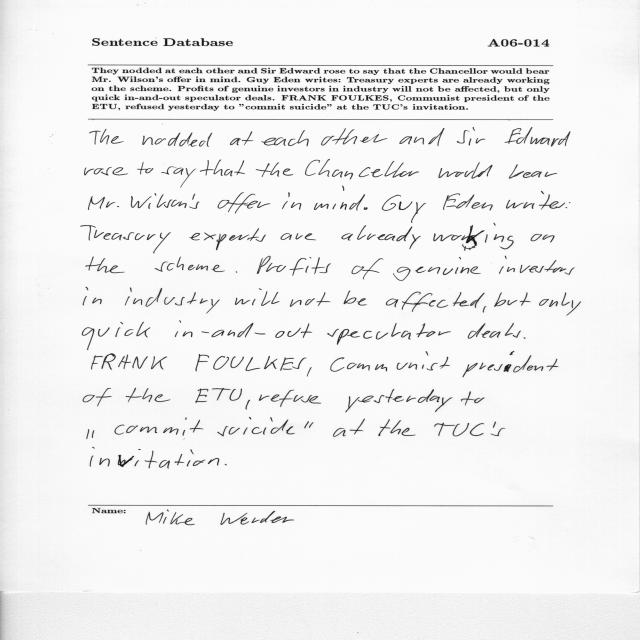 Sentence Database A06-014
They nodded at each other and Sir Edward rose to say that the Chancellor would bear
Mr. Wilson's offer in mind. Guy Eden writes: Treasury experts are already working
on the scheme. Profits of genuine investors in industry will not be affected, but only
quick in-and-out speculator deals. FRANK FOULKES, Communist president of the
ETU, refused yesterday to "commit suicide" at the TUC's invitation.
The nodded at each other and Sir Edward
rose to say that the Chancellor would bear
Mr. Wilson's offer in mind. Guy Eden write:
Treasury experts are already working on
the scheme. Profits of genuine investors
in industry will not be affected, but only
quick in-and-out speculator deals.
FRANK FOULKES, Communist president
of the ETU, refuse yesterday to
„commit suicide" at the TUC's
invitation.
Name: Mike Werder